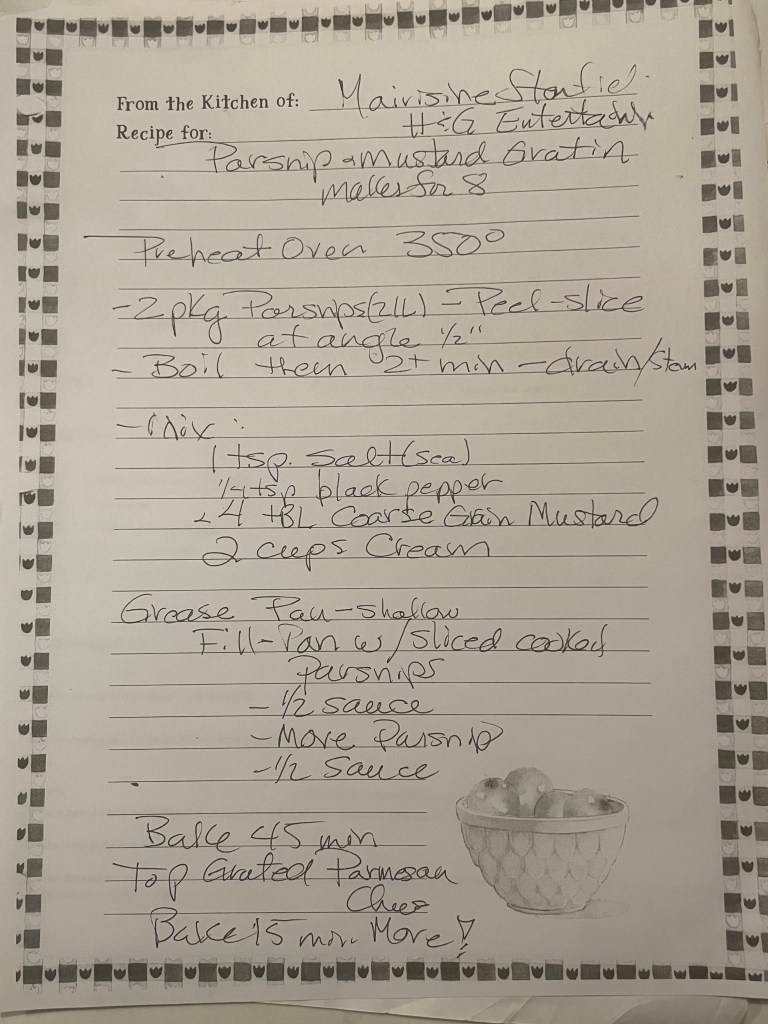 From the Kitchen of: Mairisine Stonfiel.
Recipe for: H&G Entertadn
Parsnip & Mustard Gratin
makes for 8
Preheat Oven 350°
- 2 pkg Parsnps (2lL) - Peel - slice
at angle 1/2"
- Boil them 2+ min - drain/steam
- Mix :
1 tsp. salt (sea)
1/4 tsp black pepper
4 TBL Coarse Grain Mustard
2 cups Cream
Grease Pan - shallow
Fill - Pan w/sliced cooked
Parsnips
- 1/2 sauce
- More Parsnip
- 1/2 Sauce
Bake 45 min
Top Grated Parmesan
Chees
Bake 15 min. More!